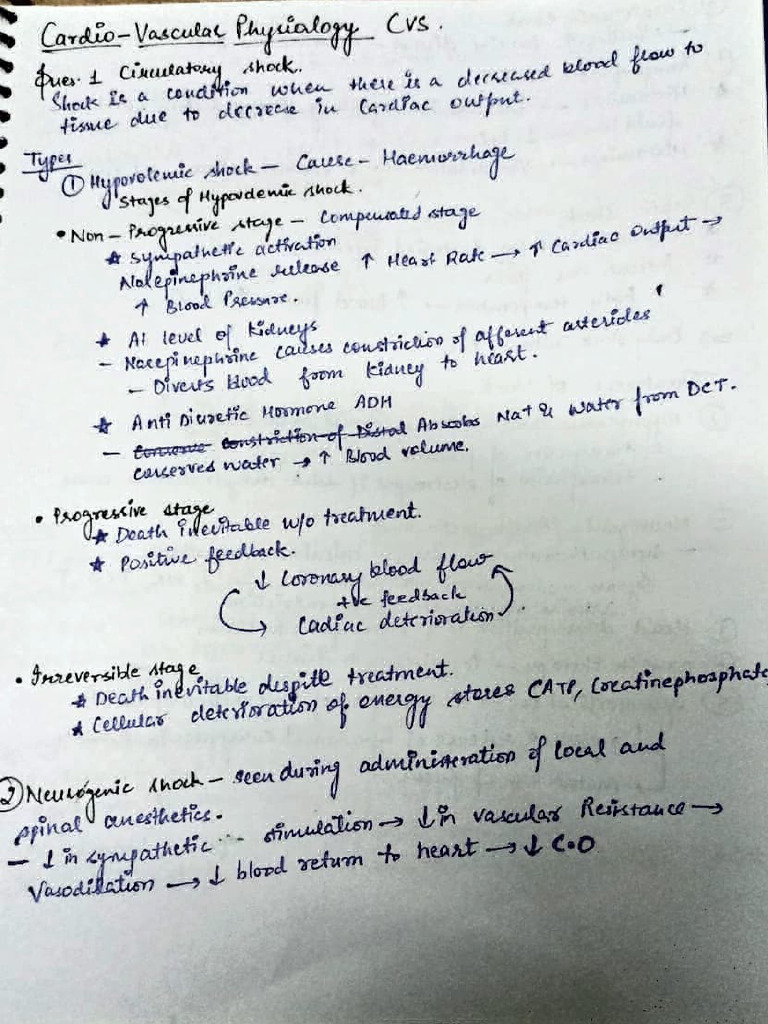 Cardio-Vascular Physiology CVS.
Ques. 1 Circulatory shock.
Shock is a condition when there is a decreased blood flow to
tissue due to decrease in Cardiac output.
Types
① Hypovolemic shock – Cause – Haemorrhage
Stages of Hypovolemic shock.
• Non – Progressive stage – Compensated stage
★ Sympathetic activation
Norepinephrine release ↑ Heart Rate → ↑ Cardiac Output →
↑ Blood Pressure.
★ At level of Kidneys
– Norepinephrine causes constriction of afferent arterioles
– Diverts blood from kidney to heart.
★ Anti Diuretic Hormone ADH
– Conserve constriction of Distal Absorbs Na+ & water from DCT.
conserved water → ↑ Blood volume.
• Progressive stage
★ Death inevitable w/o treatment.
★ Positive feedback.
↓ Coronary blood flow
+ve feedback
Cadiac deterioration
• Irreversible stage
★ Death inevitable despite treatment.
★ Cellular deterioration of energy stores (ATP, Creatinephosphate
② Neurogenic shock – seen during administration of local and
spinal anesthetics.
– ↓ in sympathetic stimulation → ↓ in vascular Resistance →
Vasodilation → ↓ blood return to heart → ↓ C.O